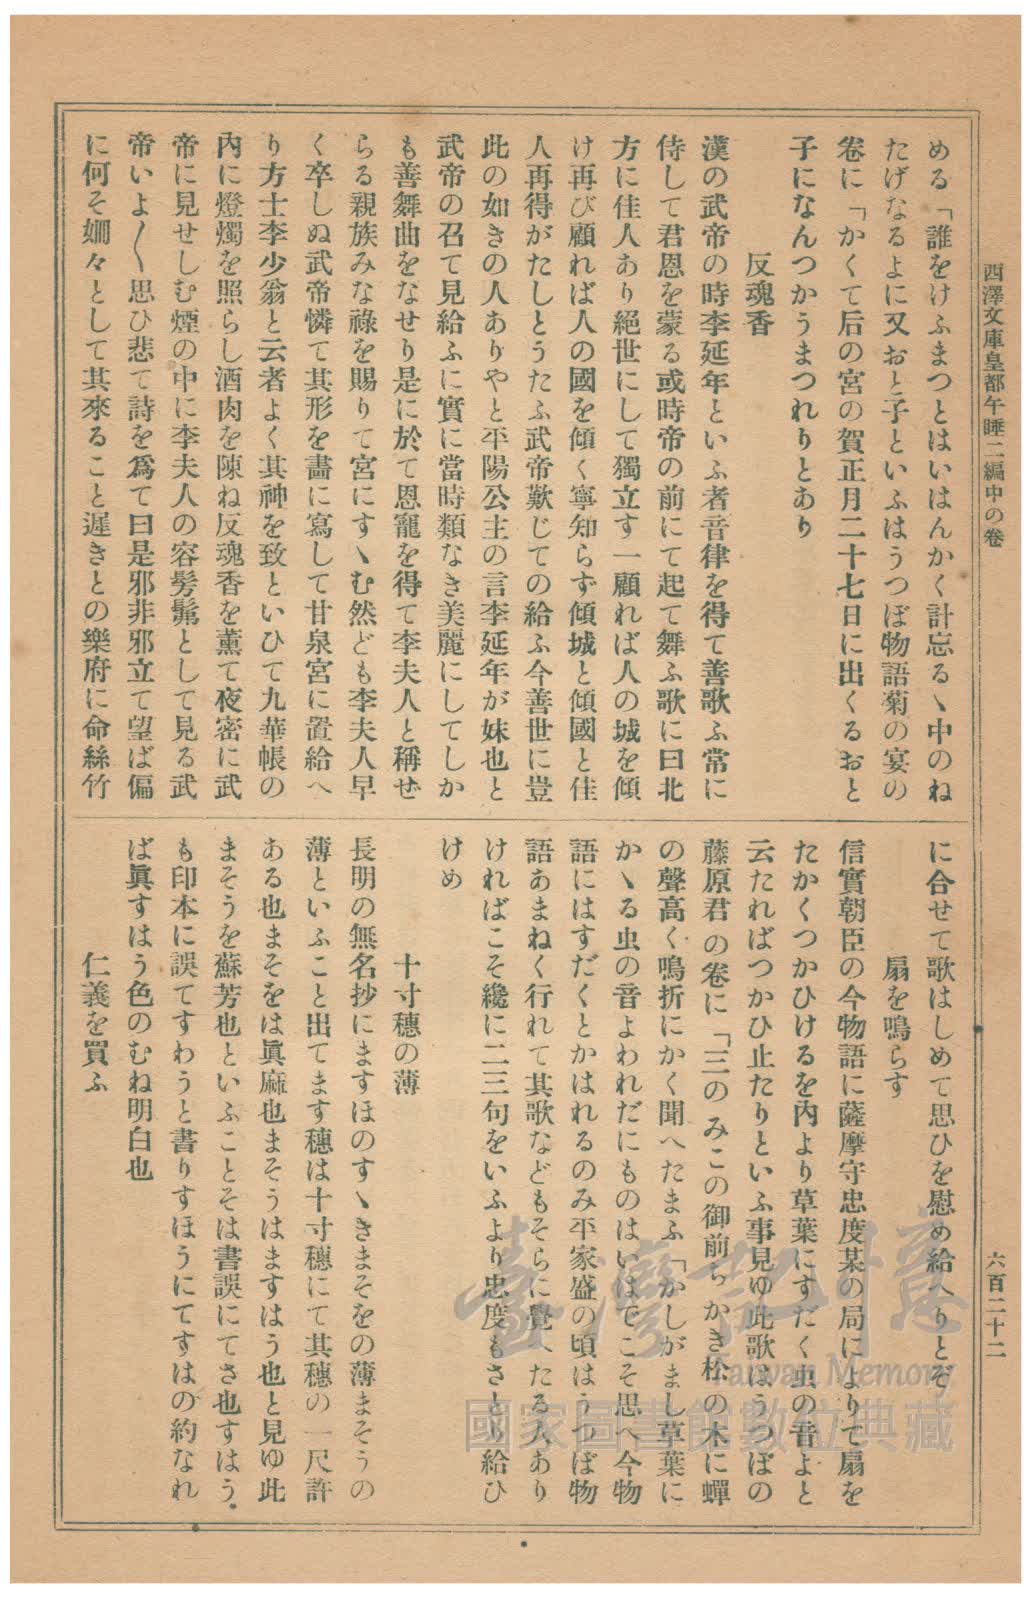 西澤文庫皇都午睡二編中の卷
六百二十二
める「誰をけふまつとはいはんかく計忘るヽ中のね
たげなるよに又おと子といふはうつぼ物語菊の宴の
卷に「かくて后の宮の賀正月二十七日に出くるおと
子になんつかうまつれりとあり
反魂香
漢の武帝の時李延年といふ者音律を得て善歌ふ常に
侍して君恩を蒙る或時帝の前にて起て舞ふ歌に曰北
方に佳人あり絕世にして獨立す一顧れば人の城を傾
け再び顧れば人の國を傾く寧知らず傾城と傾國と佳
人再得がたしとうたふ武帝歎じての給ふ今善世に豈
此の如きの人ありやと平陽公主の言李延年が妹也と
武帝の召て見給ふに實に當時類なき美麗にしてしか
も善舞曲をなせり是に於て恩寵を得て李夫人と稱せ
らる親族みな祿を賜りて宮にすヽむ然ども李夫人早
く卒しぬ武帝憐て其形を畵に寫して甘泉宮に置給へ
り方士李少翁と云者よく其神を致といひて九華帳の
內に燈燭を照らし酒肉を陳ね反魂香を薰て夜密に武
帝に見せしむ煙の中に李夫人の容髣髴として見る武
帝いよ〳〵思ひ悲て詩を爲て曰是邪非邪立て望ば偏
に何そ姍々として其來ること遲きとの樂府に命絲竹
に合せて歌はしめて思ひを慰め給へりとぞ
扇を鳴らす
信實朝臣の今物語に薩摩守忠度某の局によりて扇を
たかくつかひけるを內より草葉にすだく虫の音よと
云たればつかひ止たりといふ事見ゆ此歌はうつぼの
藤原君の卷に「三のみこの御前らかき松の木に蟬
の聲高く鳴折にかく聞へたまふ「かしがまし草葉に
かヽる虫の音よわれだにものはいはでこそ思へ今物
語にはすだくとかはれるのみ平家盛の頃はうつぼ物
語あまねく行れて其歌などもそらに覺へたる人あり
ければこそ纔に二三句をいふより忠度もさとり給ひ
けめ
十寸穗の薄
長明の無名抄にますほのすヽきまそをの薄まそうの
薄といふこと出てます穗は十寸穗にて其穗の一尺許
ある也まそをは眞麻也まそうはますはう也と見ゆ此
まそうを蘇芳也といふことそは書誤にてさ也すはう
も印本に誤てすわうと書りすほうにてすはの約なれ
ば眞すはう色のむね明白也
仁義を買ふ
臺灣記憶
Taiwan Memory
國家圖書館數位典藏